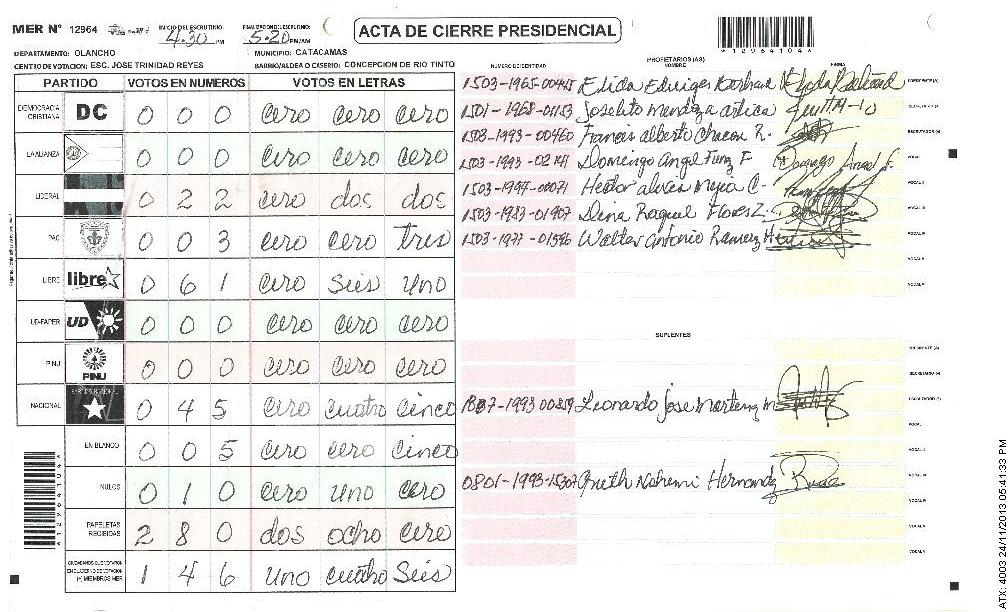 MER Nº 12964 INICIO DEL ESCRUTINIO: 4:30 PM FINALIZACION DEL ESCRUTINIO: 5:20 PM/AM ACTA DE CIERRE PRESIDENCIAL
*12964104*
DEPARTAMENTO: OLANCHO MUNICIPIO: CATACAMAS
CENTRO DE VOTACION: ESC. JOSE TRINIDAD REYES BARRIO/ALDEA O CASERIO: CONCEPCION DE RIO TINTO
PARTIDO VOTOS EN NUMEROS VOTOS EN LETRAS
DEMOCRACIA CRISTIANA DC 0 0 0 cero cero cero
LA ALIANZA 0 0 0 cero cero cero
LIBERAL 0 2 2 cero dos dos
PAC 0 0 3 cero cero tres
LIBRE libre 0 6 1 cero seis uno
UD-FAPER UD 0 0 0 cero cero cero
PINU PINU 0 0 0 cero cero cero
NACIONAL 0 4 5 cero cuatro cinco
EN BLANCO 0 0 5 cero cero cinco
NULOS 0 1 0 cero uno cero
PAPELETAS RECIBIDAS 2 8 0 dos ocho cero
CIUDADANOS QUE VOTARON EN CUADERNO DE VOTACION (+) MIEMBROS MER 1 4 6 uno cuatro seis
*12964104*
PROPIETARIOS (AS)
NUMERO DE IDENTIDAD NOMBRE FIRMA
1503-1965-00445 Elida PRESIDENTE (A)
1501-1968-01153 Joselito Mendoza SECRETARIO (A)
1503-1993-00460 Francis alberto Chacon R. ESCRUTADOR (A)
1503-1993-02141 Domingo Angel Funz F Domingo Angel F. VOCAL I
1503-1994-00071 Hector Mejia C. VOCAL II
1503-1983-01907 Dina Raquel Flores Z. VOCAL III
1503-1977-01596 Walter Antonio Ramirez VOCAL IV
VOCAL V
SUPLENTES
PRESIDENTE (A)
SECRETARIO (A)
1993 00859 Leonardo Jose ESCRUTADOR (A)
VOCAL I
VOCAL II
0801-1993- Nohemi Hernandz VOCAL III
VOCAL IV
VOCAL V
ATX: 4003 24/11/2013 05:41:33 PM